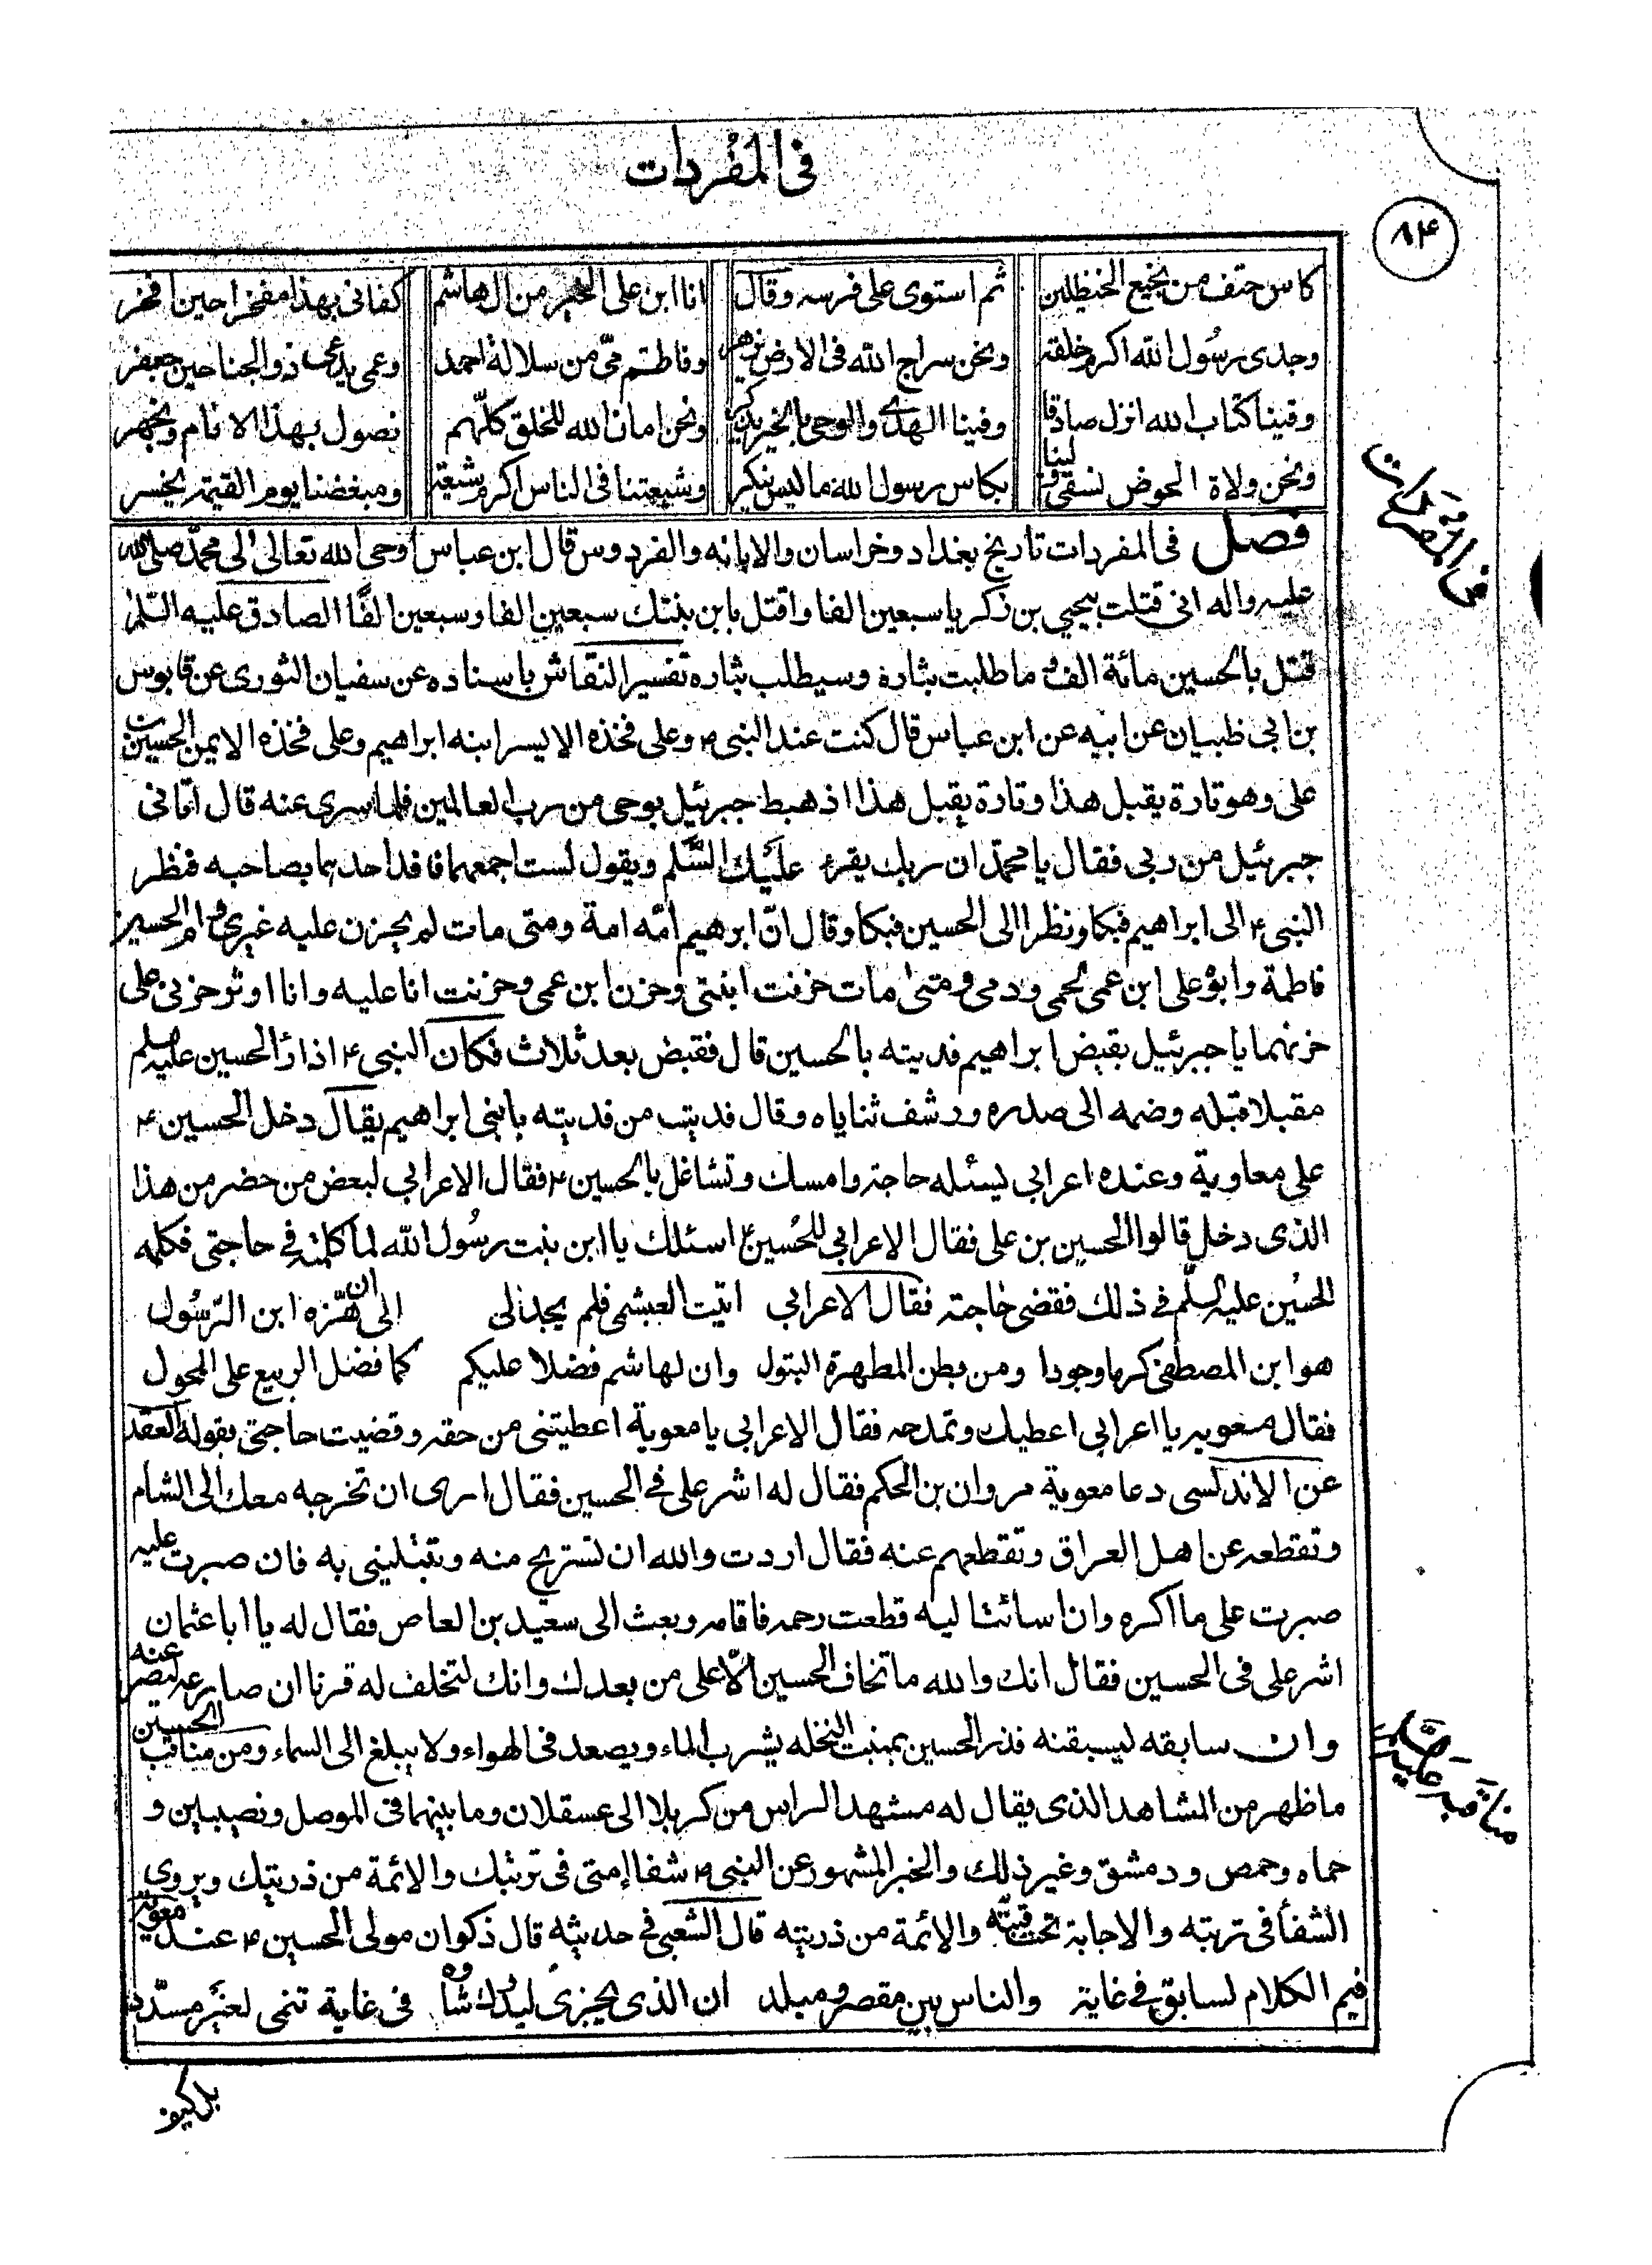 فى المفردات
۸۴
كاس حتف من نجيع الحنظلين ثم استوى على فرسه وقال انا ابن على الخير من ال هاشم كفانى بهذا مفخرا حين افخر
وجدى رسول الله اكرم خلقه ونحن سراج الله فى الارض يزهر وفاطم امى من سلالة احمد وعمى يدعى ذو الجناحين جعفر
وفينا كتاب الله انزل صادقا وفينا الهدى والوحى بالخير يذكر ونحن امان الله للخلق كلهم نصول بهذا الانام ونجهر
ونحن ولاة الحوض نسقى ولينا بكاس رسول الله ما ليس ينكر وشيعتنا فى الناس اكرم شيعة ومبغضنا يوم القيمة يخسر
فى المفردات
فصل فى المفردات تاريخ بغداد وخراسان والابانه والفردوس قال ابن عباس اوحى الله تعالى الى محمد صلى الله
عليه واله انى قتلت بيحيى بن زكريا سبعين الفا واقتل بابن بنتك سبعين الفا وسبعين الفًا الصادق عليه السّلم
قتل بالحسين مائة الف وما طلبت بثاره وسيطلب بثاره تفسير النقاش باسناده عن سفيان الثورى عن قابوس
بن ابى ظبيان عن ابيه عن ابن عباس قال كنت عند النبى ص وعلى فخذه الايسر ابنه ابراهيم وعلى فخذه الايمن الحسين بن
على وهو تارة يقبل هذا وتارة يقبل هذا اذ هبط جبرئيل بوحى من رب العالمين فلما سرى عنه قال اتانى
جبرئيل من ربى فقال يا محمد ان ربك يقرء عليك السّلم ويقول لست اجمعهما فافد احدهما بصاحبه فنظر
النبى ص الى ابراهيم فبكا ونظر الى الحسين فبكا وقال انّ ابرهيم امّه امة ومتى مات لم يحزن عليه غيرى وام الحسين
فاطمة وابوه على ابن عمى لحمى ودمى ومتى مات حزنت ابنتى وحزن ابن عمى وحزنت انا عليه وانا اوثر حزنى على
حزنهما يا جبرئيل يقبض ابراهيم فديته بالحسين قال فقبض بعد ثلاث فكان النبى ص اذا راٰ الحسين عليه السلم
مقبلا قبّله وضمه الى صدره ورشف ثناياه وقال فديت من فديته بابنى ابراهيم يقال دخل الحسين ع
على معاوية وعنده اعرابى يسئله حاجة وامسك وتشاغل بالحسين ع فقال الاعرابى لبعض من حضر من هذا
الذى دخل قالوا الحسين بن على فقال الاعرابى للحُسين ع اسئلك يا ابن بنت رسُول الله لما كلمته فى حاجتى فكلمه
الحسُين عليه السلّم فى ذلك فقضى حاجته فقال الاعرابى اتيت العبشمى فلم يجد لى الى ان هزّه ابن الرّسُول
هو ابن المصطفى كرما وجودا ومن بطن المطهرة البتول وان لهاشم فضلا عليكم كما فضل الربيع على المحول
فقال معويه يا اعرابى اعطيك وتمدحه فقال الاعرابى يا معوية اعطيتنى من حقه وقضيت حاجتى بقوله العقد
عن الاندلسى دعا معوية مروان بن الحكم فقال له اشر على فى الحسين فقال ارى ان تخرجه معك الى الشام
وتقطعه عن اهل العراق وتقطعهم عنه فقال اردت والله ان تستريح منه وتبتلينى به فان صبرت عليه
صبرت على ما اكره وان اسائت اليه قطعت رحمه فاقامه وبعث الى سعيد بن العاص فقال له يا ابا عثمان
اشر على فى الحسين فقال انك والله ما تخاف الحسين الّا على من بعدك وانك لتخلف له قرنا ان صارعه ليصرعنه
وان سابقه ليسبقنه فذر الحسين بمنبت النخله يشرب الماء ويصعد فى الهواء ولا يبلغ الى السماء ومن مناقب الحسين
ما ظهر من المشاهد الذى يقال له مشهد الراس من كربلا الى عسقلان وما بينهما فى الموصل ونصيبين و
حماه وحمص ودمشق وغير ذلك والخبر المشهور عن النبى ص شفا امتى فى تربتك والائمة من ذريتك ويروى
الشفأ فى تربته والاجابة تحت قبّته والائمة من ذريته قال الشعبى فى حديثه قال ذكوان مولى الحسين ع عند معوية
فيم الكلام لسابق فى غاية والناس بين مقصر ومبلد ان الذى يجزى ليدرك شاوه فى غاية تنمى لغير مسدّد
بل كيف